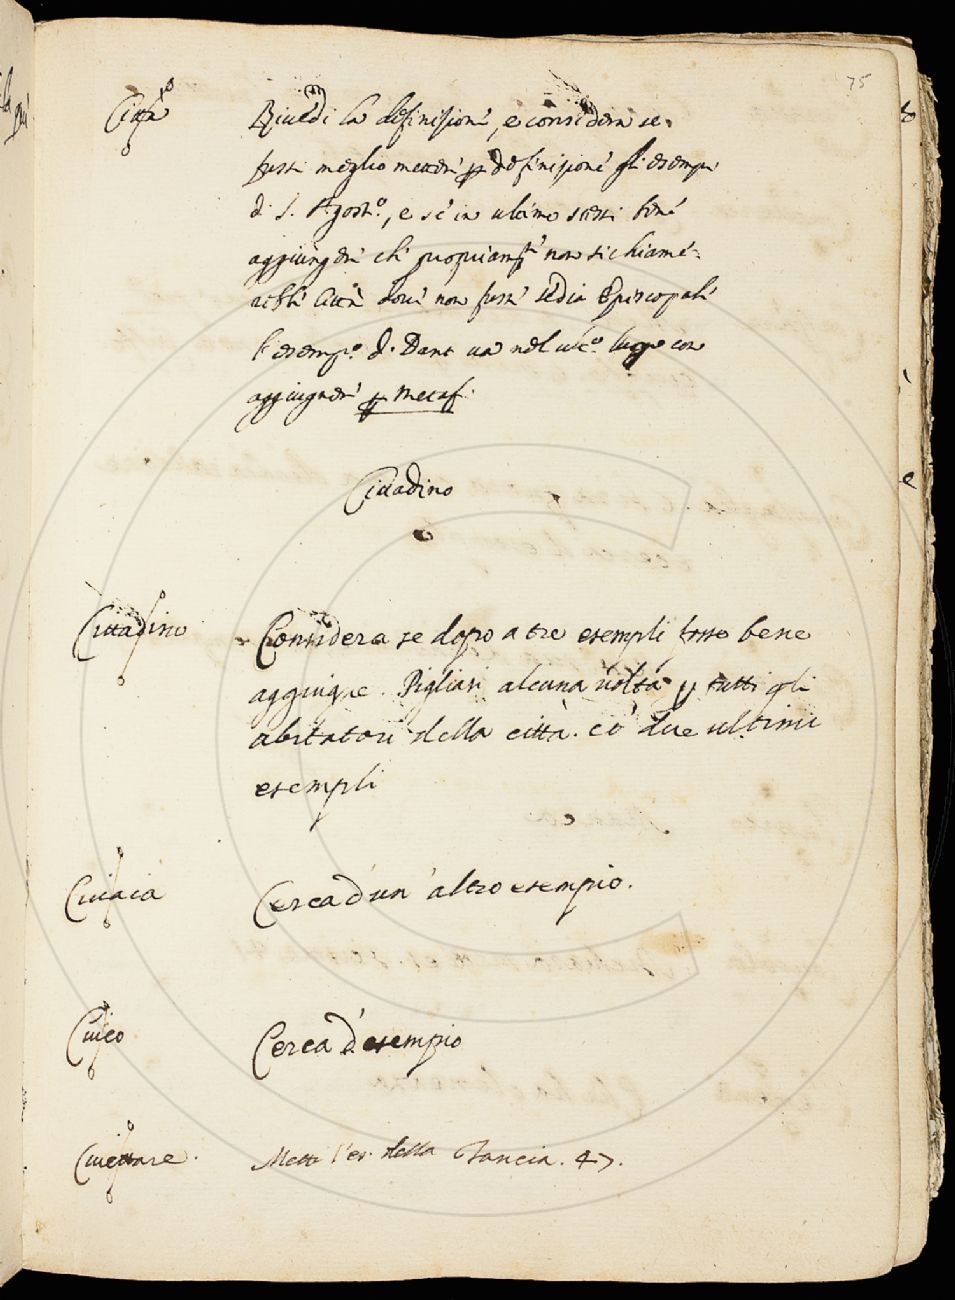 75
Città Rivedi la definizione, e considera se
fusse meglio mettere per definizione gli esempi
di S. Agost.o, e se in ultimo stessi bene
aggiungere che propriam.te non si chiame-
rebbe Città dove non fusse sedia Episcopale
l'esemp.o di Dant va nel luogo con
aggiugnere per metaf.
Cittadino
Cittadino Considera se dopo a tre esempli fosse bene
aggiugne. Pigliasi alcuna volta per tutti gli
abitatori della città. e i due ultimi
esempli
Civaia Cerca d'un'altro esempio.
Civeo Cerca d'esempio
Civettare. Metti l'es. della Tancia. 47.